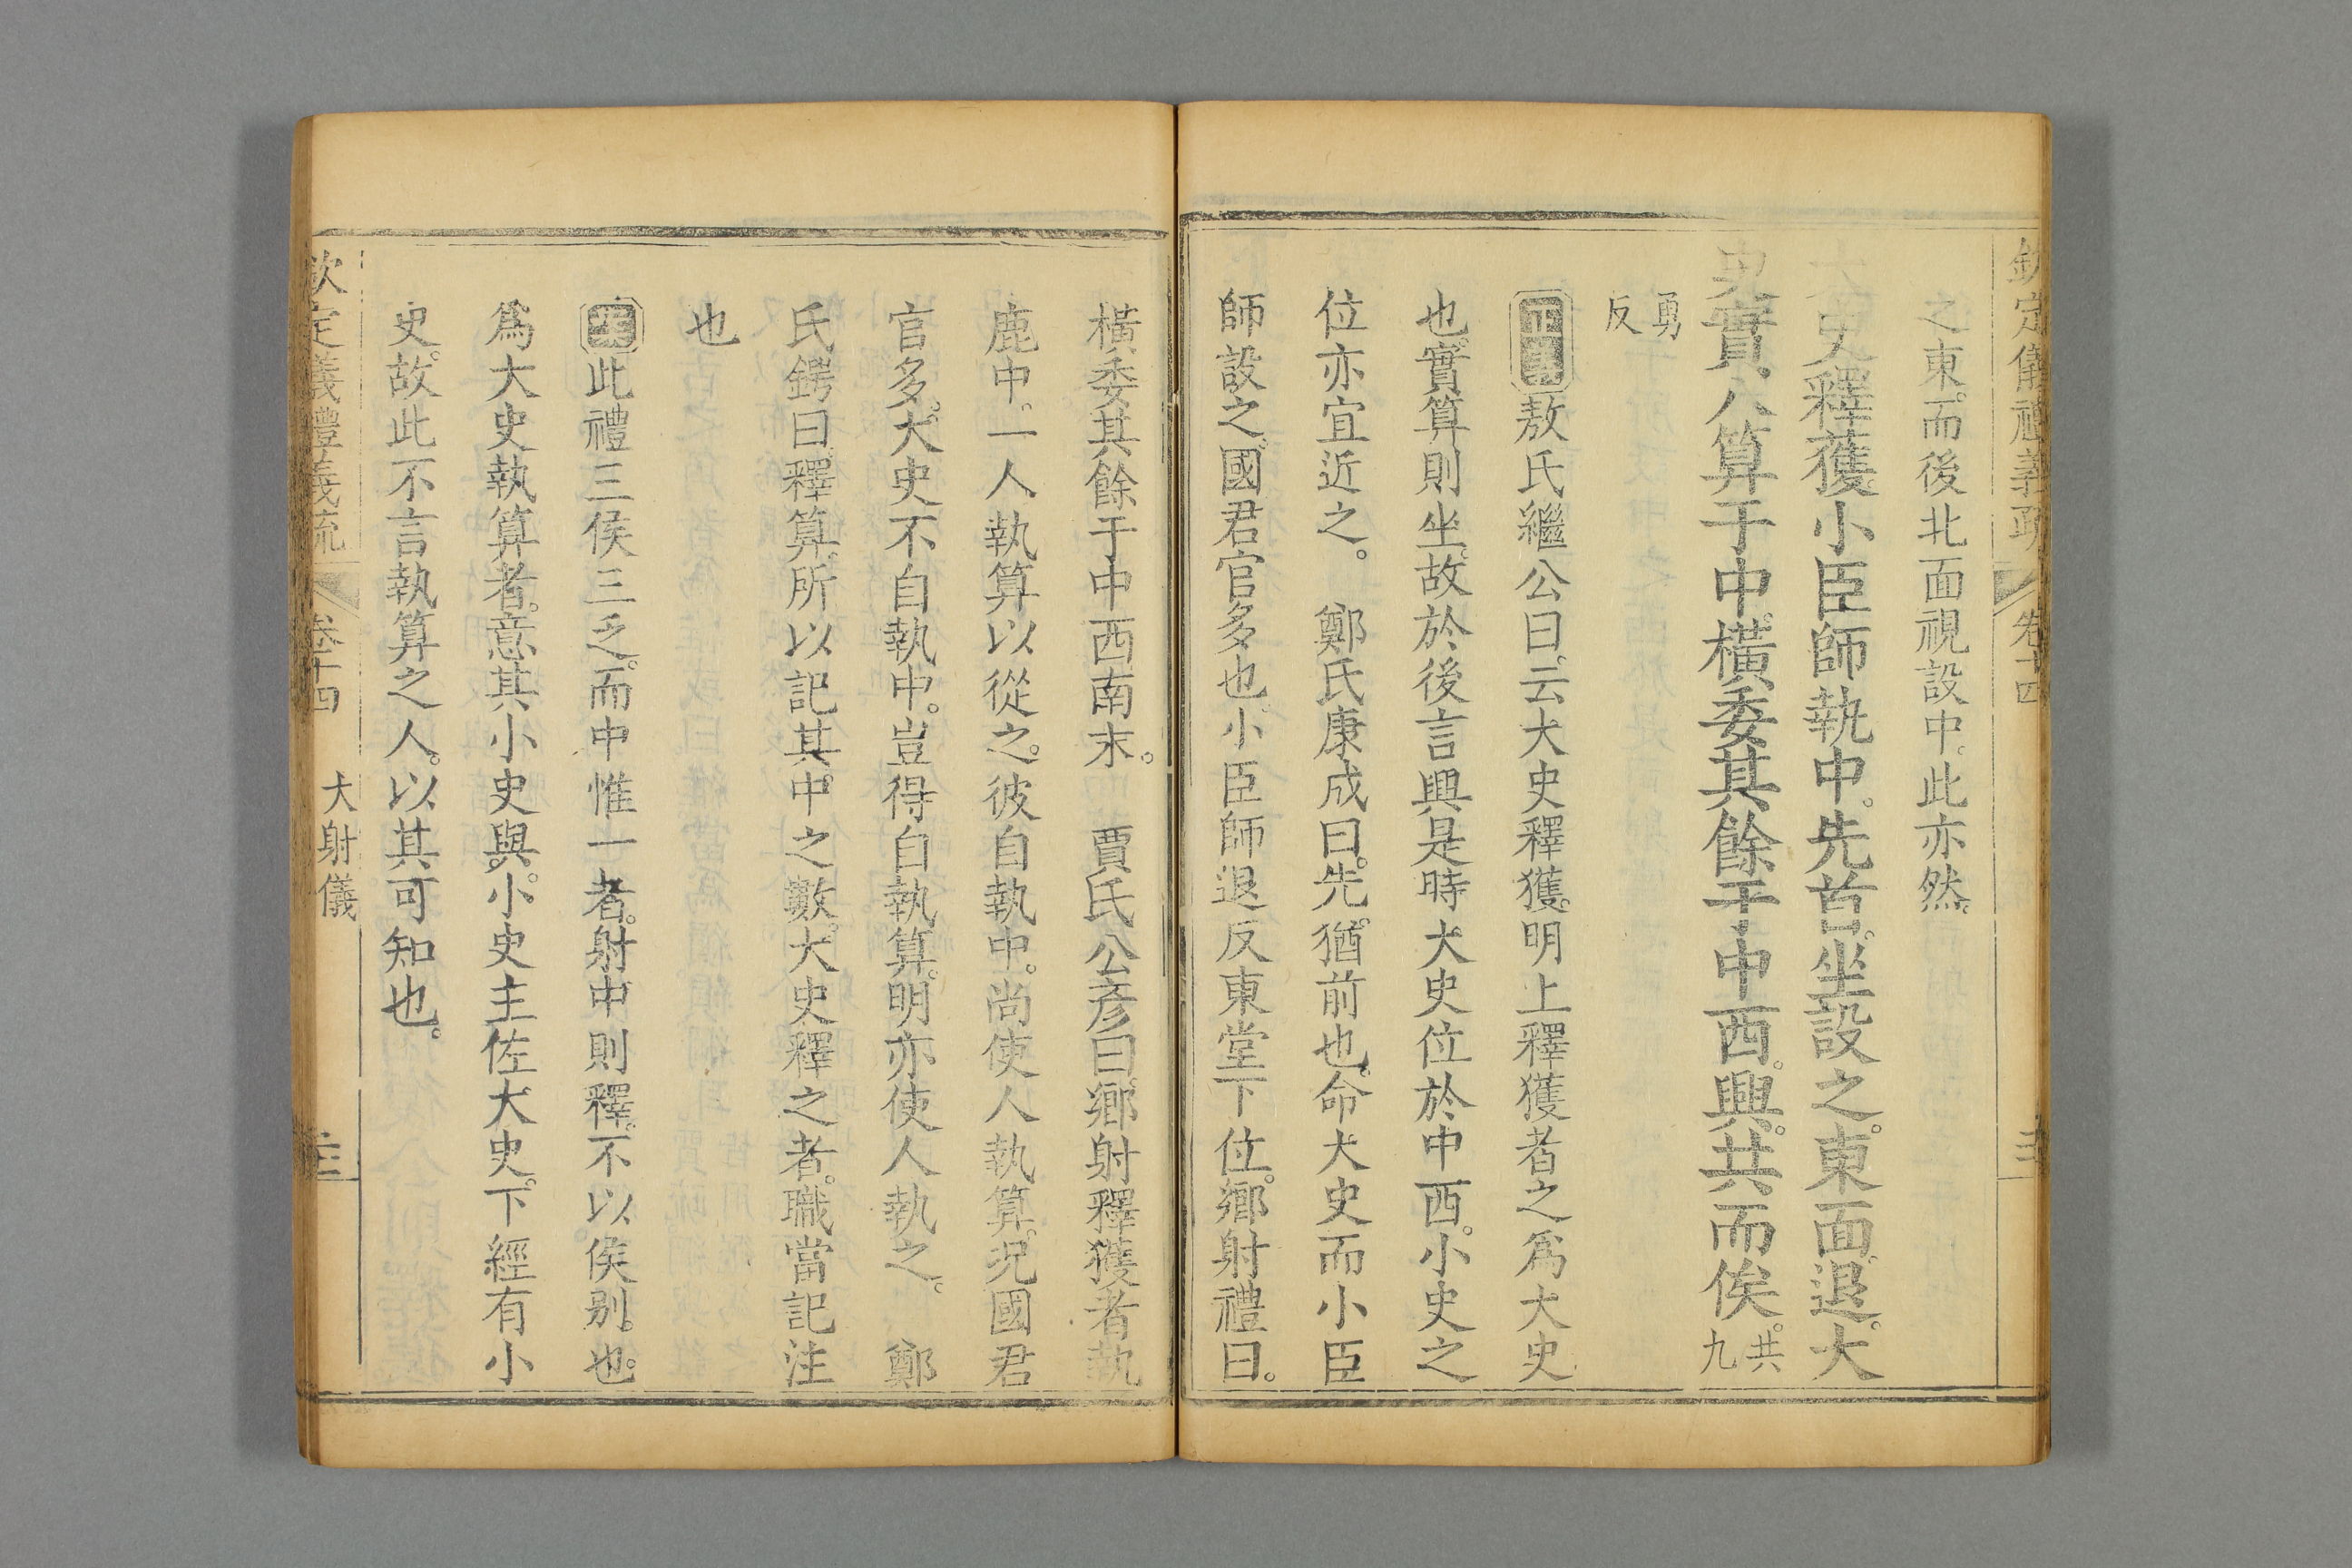 欽定儀禮義疏 卷十四
之東。而後北面視設中。此亦然。
大史釋獲。小臣師執中。先首。坐設之。東面。退。大
史實八算于中。橫委其餘于中西。興。共而俟。共九
勇反
正義敖氏繼公曰。云大史釋獲。明上釋獲者之為大史
也。實算則坐。故於後言興。是時大史位於中西。小史之
位亦宜近之。 鄭氏康成曰。先。猶前也。命大史而小臣
師設之。國君官多也。小臣師退反東堂下位。鄉射禮曰。
橫委其餘于中西南末。 賈氏公彥曰。鄉射釋獲者執
鹿中。一人執算以從之。彼自執中。尚使人執算。況國君
官多。大史不自執中。豈得自執算。明亦使人執之。 鄭
氏鍔曰。釋算。所以記其中之數。大史釋之者。職當記注
也
此禮三侯三乏。而中惟一者。射中則釋。不以侯别。也。
為大史執算者。意其小史與。小史主佐大史。下經有小
史。故此不言執算之人。以其可知也。
欽定儀禮義疏 卷十四 大射儀